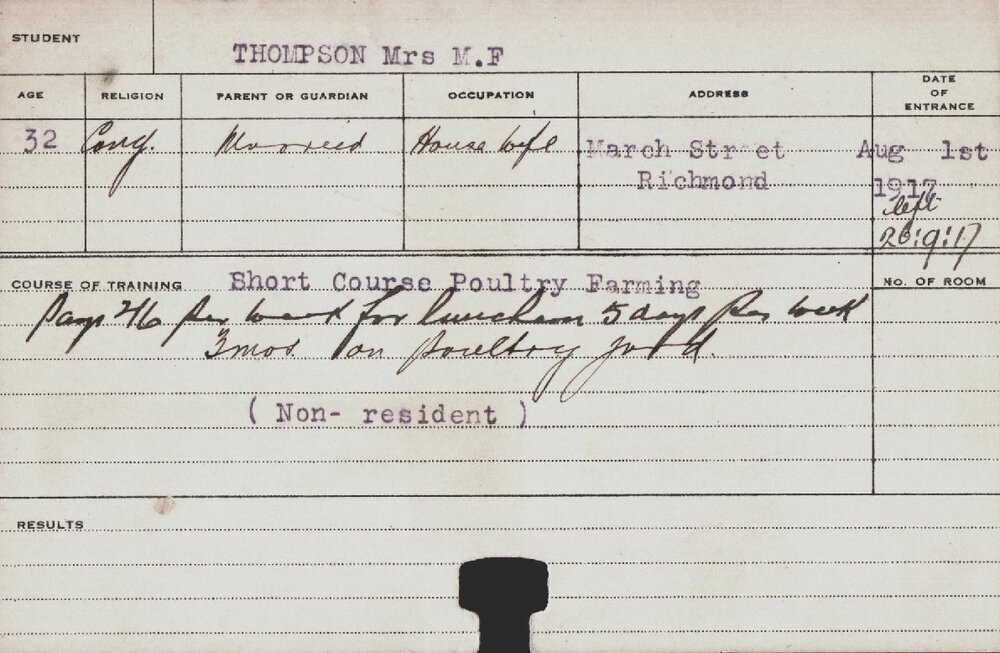 STUDENT
THOMPSON Mrs M.F
AGE RELIGION PARENT OR GUARDIAN OCCUPATION ADDRESS DATE OF ENTRANCE
32 Cong. Married House wife March Street Aug 1st
Richmond 1917
left
26:9:17
COURSE OF TRAINING Short Course Poultry Farming NO. OF ROOM
Pays 2/6 per week for luncheon 5 days per week
3mos. on poultry yard.
( Non- resident )
RESULTS